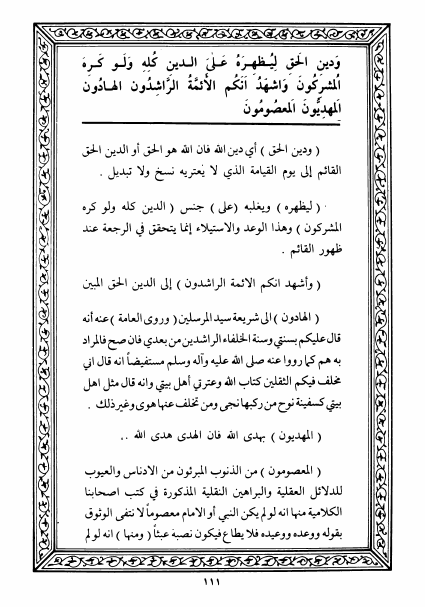 وَدينِ الحَقِ لِيُظهِرَهُ عَلىَ الـدينِ كُلِهِ وَلَـو كَـرِهَ
المُشرِكُونَ وَاشهَدُ اَنكُم الأَئمَّةُ الرَّاشِدُون الهـادُون
المَهديُّونَ المَعصُومُونَ
( ودين الحق ) أي دين الله فان الله هو الحق أو الدين الحق
القائم إلى يوم القيامة الذي لا يعتريه نسخ ولا تبديل .
( ليظهره ) ويغلبه ( على ) جنس ( الدين كله ولو كره
المشركون ) وهذا الوعد والاستيلاء إنما يتحقق في الرجعة عند
ظهور القائم .
( وأشهد انكم الائمة الراشدون ) إلى الدين الحق المبين
( الهادون ) الى شريعة سيد المرسلين ( وروى العامة ) عنه أنه
قال عليكم بسنتي وسنة الخلفاء الراشدين من بعدي فان صح فالمراد
به هم كما رووا عنه صلى الله عليه وآله وسلم مستفيضاً انه قال اني
مخلف فيكم الثقلين كتاب الله وعترتي أهل بيتي وانه قال مثل اهل
بيتي كسفينة نوح من ركبها نجى ومن تخلف عنها هوى وغير ذلك .
( المهديون ) بهدى الله فان الهدى هدى الله ..
( المعصومون ) من الذنوب المبرئون من الادناس والعيوب
للدلائل العقلية والبراهين النقلية المذكورة في كتب اصحابنا
الكلامية منها انه لو لم يكن النبي أو الامام معصوماً لا نتفى الوثوق
بقوله ووعده ووعيده فلا يطاع فيكون نصبه عبثاً ( ومنها ) انه لو لم
١١١